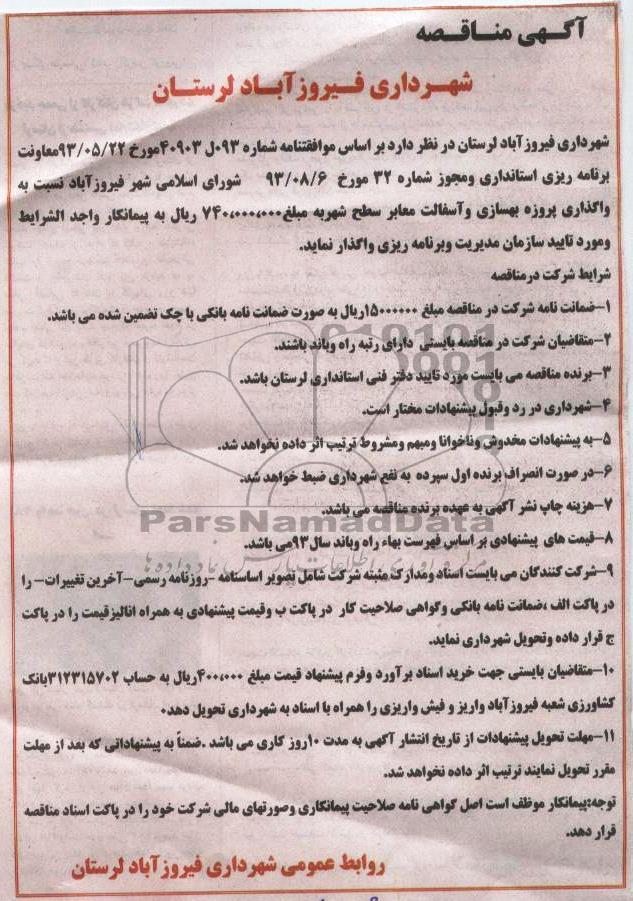 آگهی مناقصه
شهرداری فیروزآباد لرستان
شهرداری فیروزآباد لرستان در نظر دارد بر اساس موافقتنامه شماره ۰۹۳ل ۴۰۹۰۳مورخ ۹۳/۰۵/۲۲معاونت
برنامه ریزی استانداری ومجوز شماره ۳۲ مورخ ۹۳/۰۸/۶ شورای اسلامی شهر فیروزآباد نسبت به
واگذاری پروزه بهسازی وآسفالت معابر سطح شهربه مبلغ۷۴۰،۰۰۰،۰۰۰ ریال به پیمانکار واجد الشرایط
ومورد تایید سازمان مدیریت وبرنامه ریزی واگذار نماید.
شرایط شرکت درمناقصه
۱-ضمانت نامه شرکت در مناقصه مبلغ ۱۵۰۰۰۰۰۰ریال به صورت ضمانت نامه بانکی با چک تضمین شده می باشد.
۲-متقاضیان شرکت در مناقصه بایستی دارای رتبه راه وباند باشند.
۳-برنده مناقصه می بایست مورد تایید دفتر فنی استانداری لرستان باشد.
۴-شهرداری در رد وقبول پیشنهادات مختار است.
۵-به پیشنهادات مخدوش وناخوانا ومبهم ومشروط ترتیب اثر داده نخواهد شد.
۶-در صورت انصراف برنده اول سپرده به نفع شهرداری ضبط خواهد شد.
۷-هزینه چاپ نشر آگهی به عهده برنده مناقصه می باشد.
ParsNamadData
۸-قیمت های پیشنهادی بر اساس فهرست بهاء راه وباند سال۹۳می باشد.
۹-شرکت کنندگان می بایست اسناد ومدارک مثبته شرکت شامل تصویر اساسنامه -روزنامه رسمی-آخرین تغییرات- را
در پاکت الف ،ضمانت نامه بانکی وگواهی صلاحیت کار در پاکت ب وقیمت پیشنهادی به همراه انالیزقیمت را در پاکت
ج قرار داده وتحویل شهرداری نماید.
۱۰-متقاضیان بایستی جهت خرید اسناد برآورد وفرم پیشنهاد قیمت مبلغ ۴۰۰،۰۰۰ریال به حساب ۳۱۲۳۱۵۷۰۲بانک
کشاورزی شعبه فیروزآباد واریز و فیش واریزی را همراه با اسناد به شهرداری تحویل دهد۰
۱۱-مهلت تحویل پیشنهادات از تاریخ انتشار آگهی به مدت ۱۰روز کاری می باشد .ضمناً به پیشنهاداتی که بعد از مهلت
مقرر تحویل نمایند ترتیب اثر داده نخواهد شد.
توجه:پیمانکار موظف است اصل گواهی نامه صلاحیت پیمانکاری وصورتهای مالی شرکت خود را در پاکت اسناد مناقصه
قرار دهد.
روابط عمومی شهرداری فیروزآباد لرستان